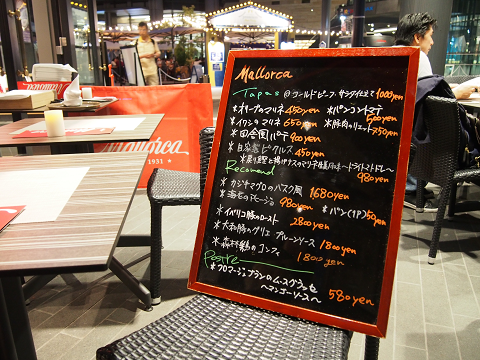 Mallorca
Tapas ＠コールドビーフ サラダ仕立て 1000yen
＊オリーブのマリネ 450yen ＊パンコントマテ 500yen
＊イワシのマリネ 650yen ＊豚肉のリエット 750yen
＊田舎風パテ 900yen
＊自家製ピクルス 450yen
980yen
Recomend
＊カジキマグロのバスク風 1680yen
＊海老のアヒージョ 980yen ＊パン(1P) 50yen
＊イベリコ豚のロースト 2800yen
＊大和豚のグリエ プルーンソース 1800yen
＊森林鶏のコンフィ 1800yen
Postre
＊フロマージュブランのムースグラッセ
〜マンゴーソース〜 580yen
Mallorca
1931